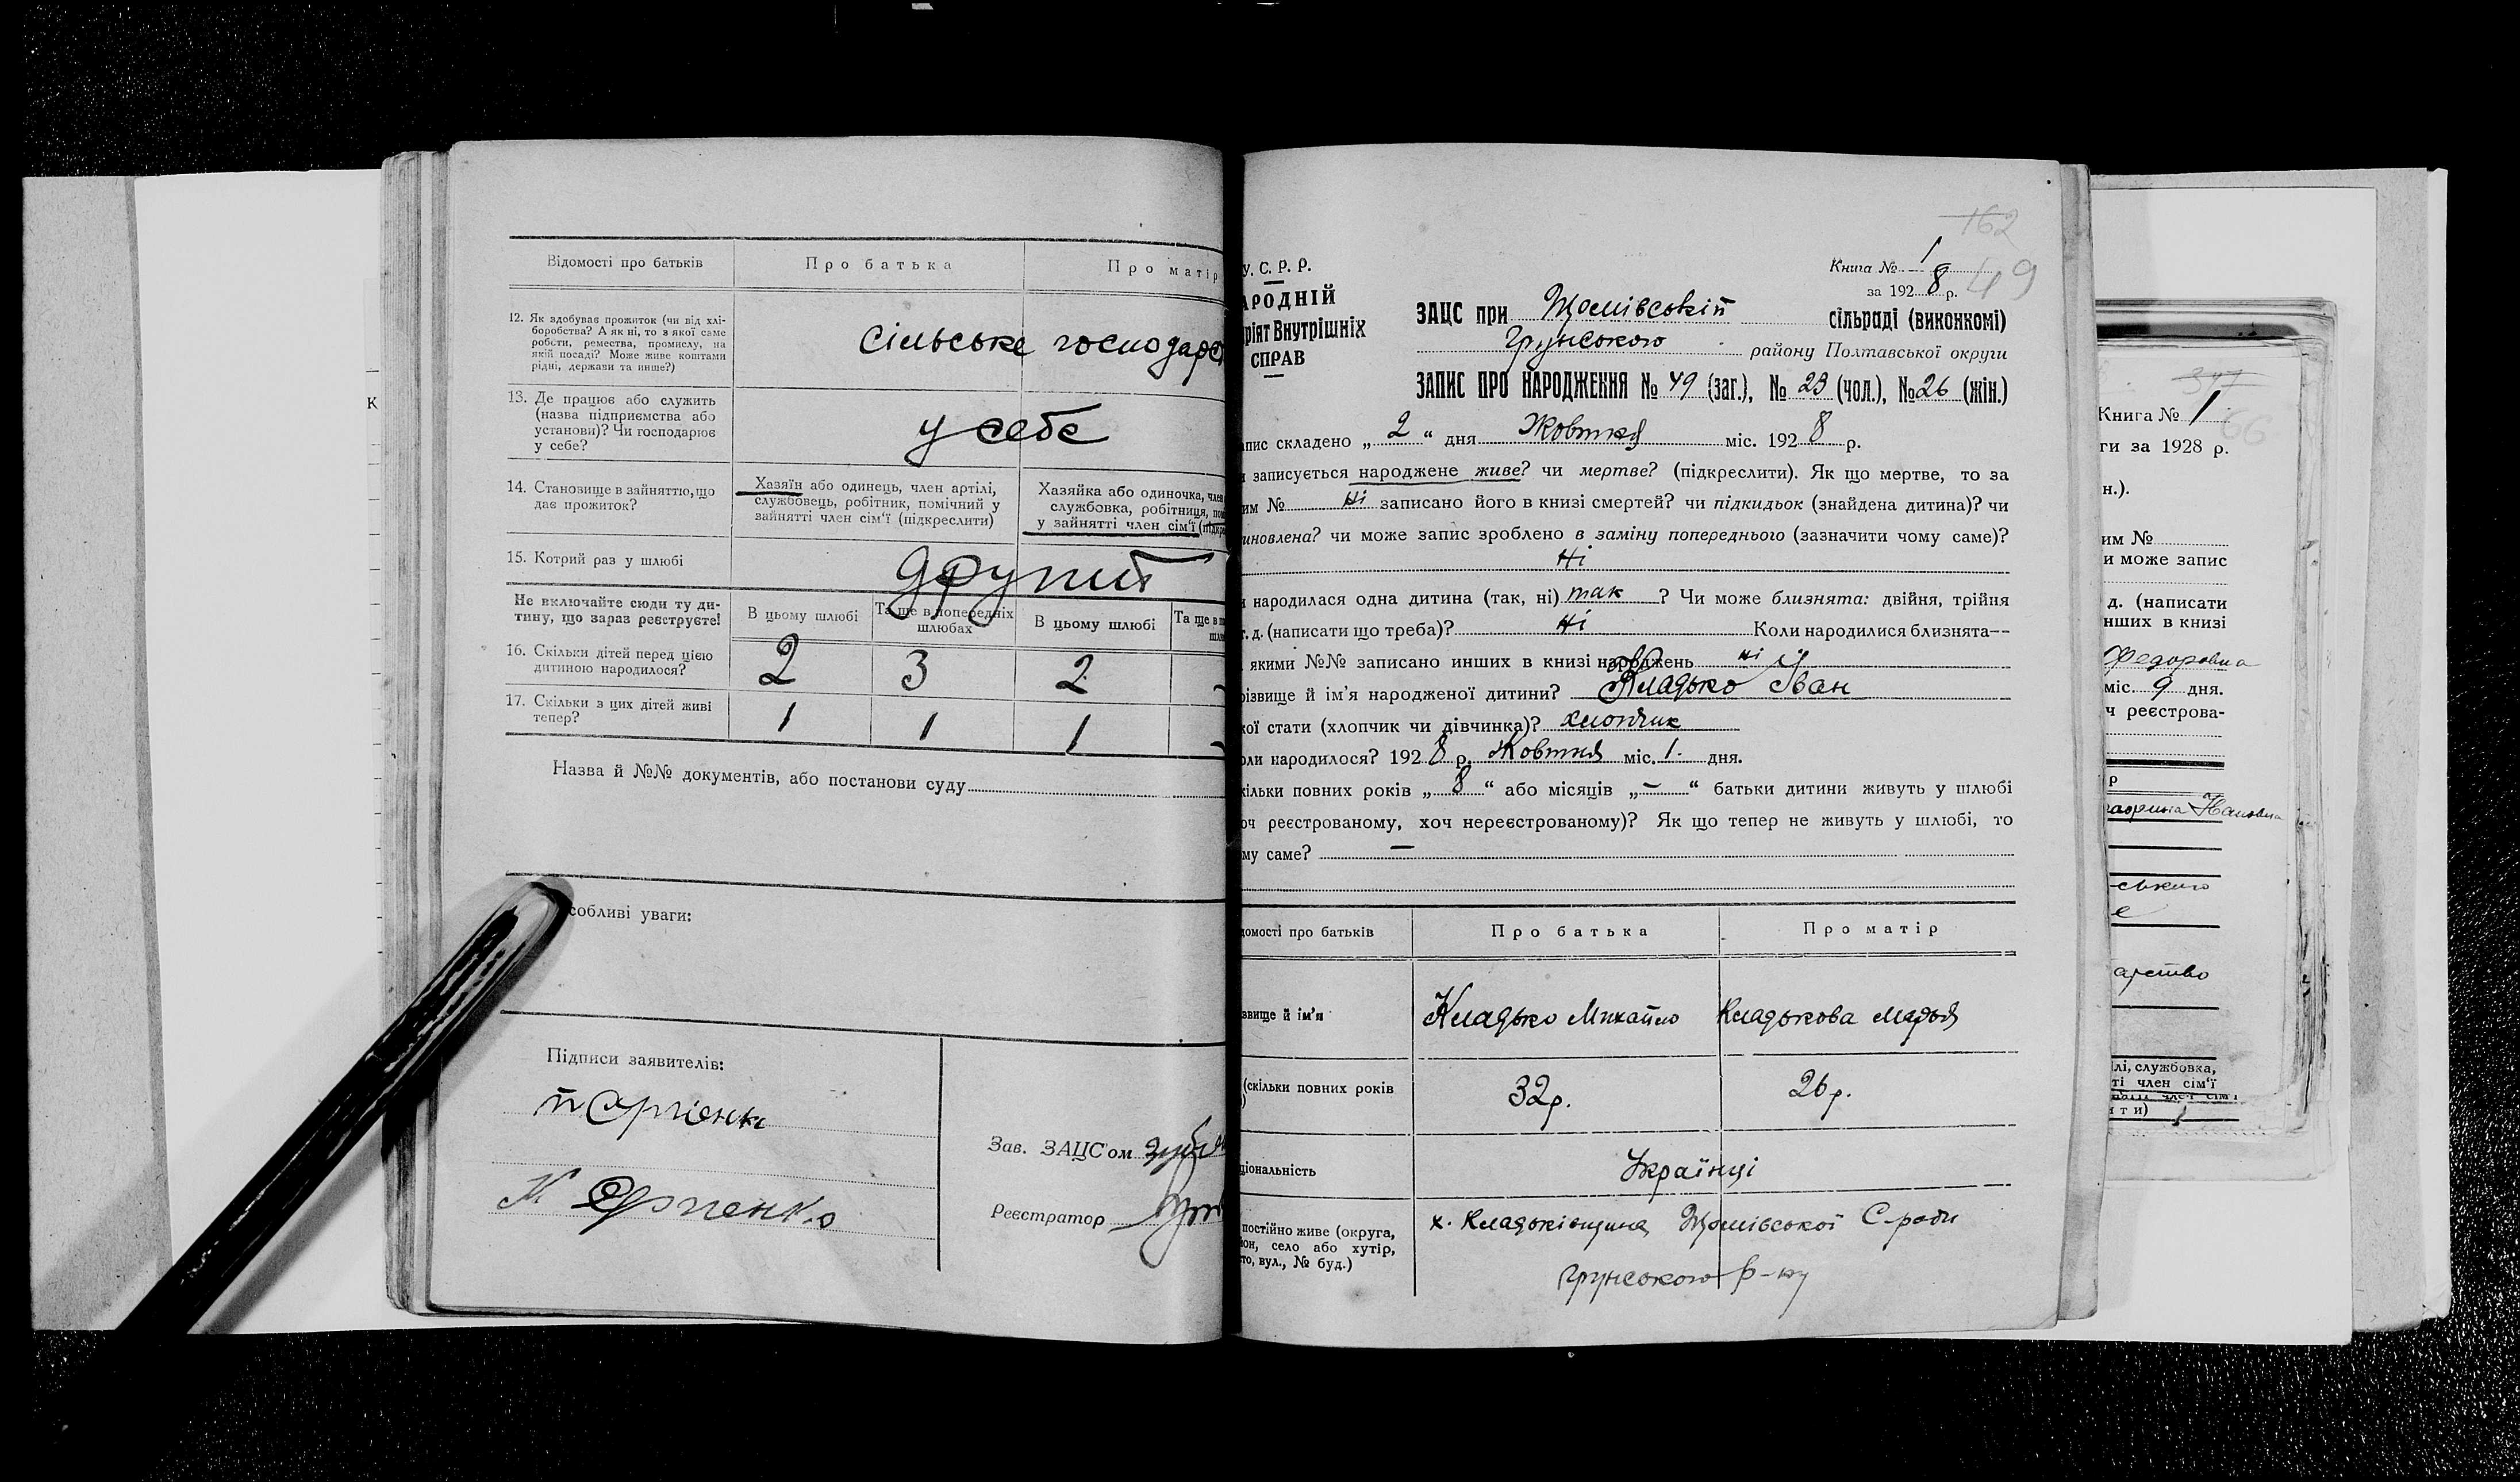 Відомості про батьків
Про батька
Про матір
12. Як здобуває прожиток (чи від хлі-
боробства? А як ні, то з якої саме
роботи, ремества, промислу, на
якій посаді? Може живе коштами
рідні, держави та инше?)
сільське господарс
13. Де працює або служить
(назва підприємства або
установи)? Чи господарює
у себе?
у себе
14. Становище в зайняттю, що
дає прожиток?
Хазяїн або одинець, член артілі,
службовець, робітник, помічний у
зайнятті член сім'ї (підкреслити)
Хазяйка або одиночка, член
службовка, робітниця,
у зайнятті член сім'ї
15. Котрий раз у шлюбі
другий
Не включайте сюди ту ди-
тину, що зараз реєструєте!
В цьому шлюбі
Та ще в попередніх
шлюбах
В цьому шлюбі
Та ще в
16. Скільки дітей перед цією
дитиною народилося?
2 3 2
17. Скільки з цих дітей живі
тепер?
1 1 1
Назва й №№ документів, або постанови суду
собливі уваги:
Підписи заявителів:
Зав. ЗАЦС'ом
Реєстратор
162
У. С. Р. Р.
АРОДНІЙ
ріят Внутрішніх
СПРАВ
Книга № 1
за 1928 р.
49
ЗАЦС при сільраді (виконкомі)
Грунського району Полтавської округи
ЗАПИС ПРО НАРОДЖЕННЯ № 49 (заг.), № 23 (чол.), № 26 (жін.)
апис складено „ 2 “ дня Жовтня міс. 1928 р.
записується народжене живе? чи мертве? (підкреслити). Як що мертве, то за
им № ні записано його в книзі смертей? чи підкидьок (знайдена дитина)? чи
иновлена? чи може запис зроблено в заміну попереднього (зазначити чому саме)?
ні
народилася одна дитина (так, ні) так ? Чи може близнята: двійня, трійня
т. д. (написати що треба)? ні Коли народилися близнята—
якими №№ записано инших в книзі народжень ні
різвище й ім'я народженої дитини? Кладько Іван
кої стати (хлопчик чи дівчинка)? хлопчик
оли народилося? 1928 р. Жовтня міс. 1. дня.
кільки повних років „ 8 “ або місяців „ — “ батьки дитини живуть у шлюбі
оч реєстрованому, хоч нереєстрованому)? Як що тепер не живуть у шлюбі, то
му саме? —
домості про батьків
Про батька
Про матір
звище й ім'я
Кладько Михайло
Кладькова Марья
(скільки повних років
32 р.
26 р.
ціональність
Українці
постійно живе (округа,
йон, село або хутір,
то, вул., № буд.)
х. Кладьківщина С-ради
Грунського р-ну
347
Книга № 1
66
ги за 1928 р.
н.).
им №
и може запис
д. (написати
нших в книзі
Федоровна
міс. 9 дня.
ч реєстрова-
Івановна
ського
арство
лі, службовка,
ті член сім'ї